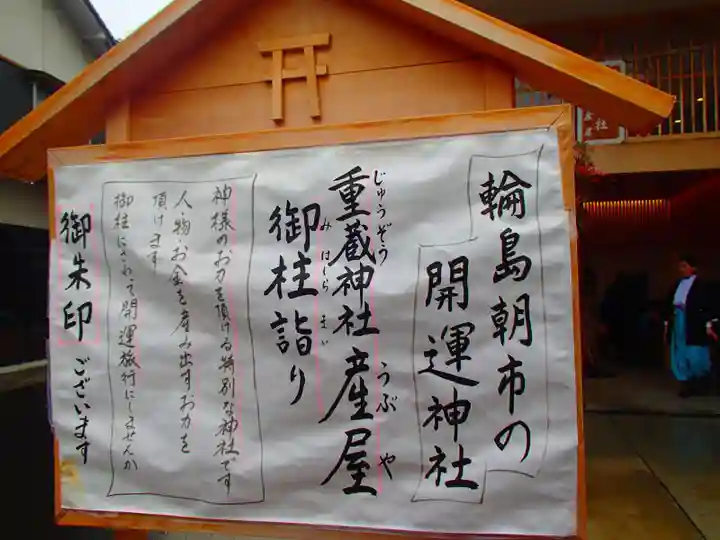 輪島朝市の
開運神社
じゅうぞう うぶや
重蔵神社産屋
みはしらまいり
御柱詣り
神様のお力を頂ける特別な神社です
人・物・お金を産み出すお力を
頂けます
御柱にさわって開運旅行にしませんか
御朱印ございます
社